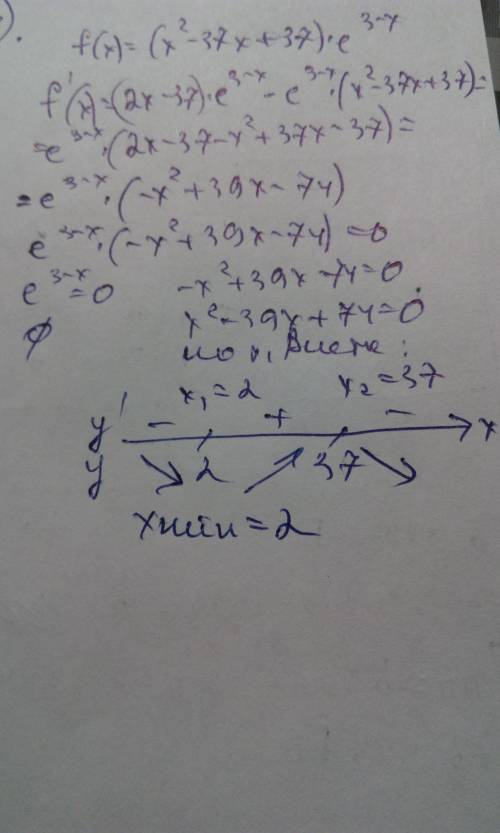 ).
f(x) = (x²-37x+37)·e^(3-x)
f'(x)=(2x-37)·e^(3-x) - e^(3-x)·(x²-37x+37)=
=e^(3-x)·(2x-37-x²+37x-37)=
=e^(3-x)·(-x²+39x-74)
e^(3-x)·(-x²+39x-74)=0
e^(3-x)=0 -x²+39x-74=0
∅ x²-39x+74=0
по т. Виета:
x₁=2 x₂=37
y' - + - x
y ↘ 2 ↗ 37 ↘
xмин=2